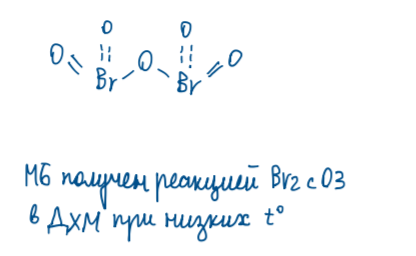 O O
O Br O Br O
МБ получен реакцией Br2 с O3
в ДХМ при низких t°